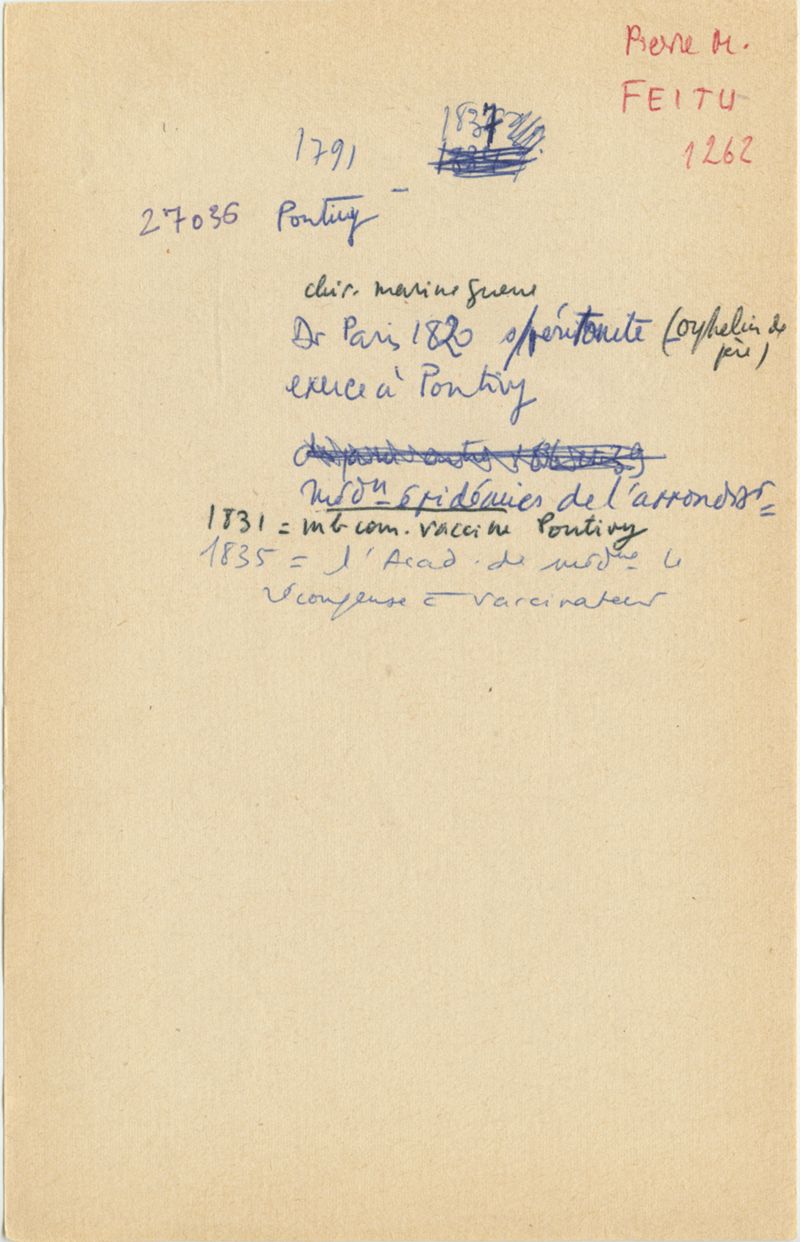 Pierre M.
FEITU
1262
1791 1837
27036 Pontivy -
chir. marine guerre
Dr Paris 1820 s/péritonite (orphelin de père)
exerce à Pontivy
médn épidémies de l'arrondisst =
1831 = mb com. vaccine Pontivy
1835 = l'Acad. de médne le
récompense = vaccinateur